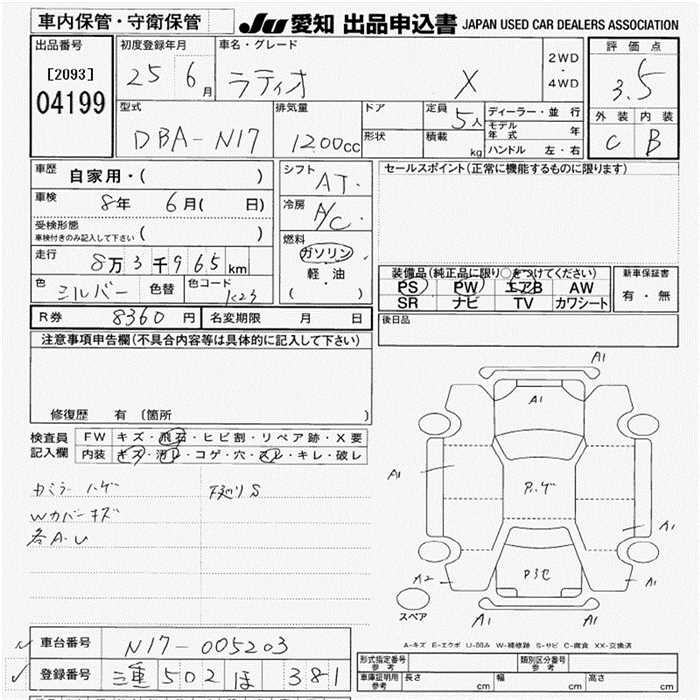 車内保管・守衛保管
JU 愛知 出品申込書 JAPAN USED CAR DEALERS ASSOCIATION
出品番号
[2093]
04199
初度登録年月
25 6月
車名・グレード
ラティオ X
2WD・4WD
評価点
3.5
外装 内装
C B
型式
DBA-N17
排気量
1200cc
ドア
形状
定員
5人
積載 kg
ディーラー・並行
モデル年式 年
ハンドル 左・右
車歴
自家用・( )
車検
8年 6月( 日)
受検形態
車検付きのみ記入して下さい ( )
走行
8万3千965km
色
シルバー
色替
色コード
K23
シフト
AT
冷房
A/C
燃料
ガソリン
軽・油
( )
セールスポイント(正常に機能するものに限ります)
装備品(純正品に限り○をつけてください)
PS PW エアB AW
SR ナビ TV カワシート
新車保証書
有・無
R券 8360円 名変期限 月 日
後日品
注意事項申告欄(不具合内容等は具体的に記入して下さい)
修復歴 有 〔箇所 〕
検査員記入欄
FW キズ・飛石・ヒビ割・リペア跡・X要
内装 キズ・汚レ・コゲ・穴・スレ・キレ・破レ
カミラーハゲ 下廻りS
Wカバーキズ
各A・U
A1
A1
A1
P.ハゲ
A1
A2
Pヨセ
A1
A1
スペア
A-キズ E-エクボ U-凹み W-補修跡 S-サビ C-腐食 XX-交換済
車台番号 N17-005203
登録番号 三重 502 ほ 381
形式指定番号 参考
類別区分番号 参考
車庫証明用 参考
長さ cm 幅 cm 高さ cm